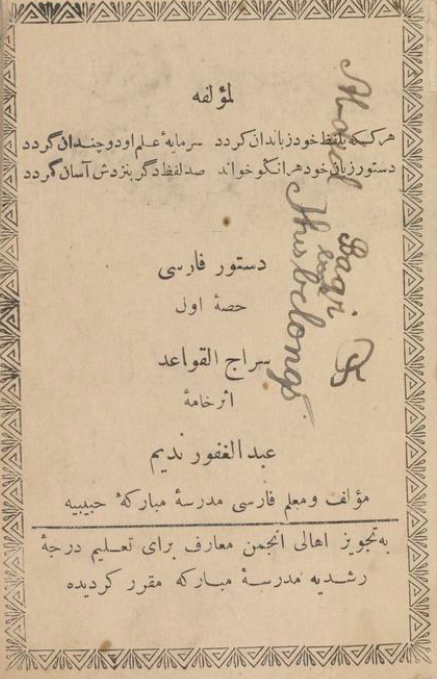 لمؤلفه
هر کسکه بلفظ خود زباندان کردد سرمایهٔ علم او دو چندان گردد
دستور زبان خود هر انکو خواند صد لفظ دگر بنزدش آسان گردد
دستور فارسی
حصهٔ اول
سراج القواعد
اثر خامهٔ
عبد الغفور ندیم
مؤلف ومعلم فارسی مدرسهٔ مبارکهٔ حبیبیه
به تجویز اهالی انجمن معارف برای تعلیم درجهٔ
رشدیه مدرسهٔ مبارکه مقرر کردیده
Abdul Baqi
This belongs